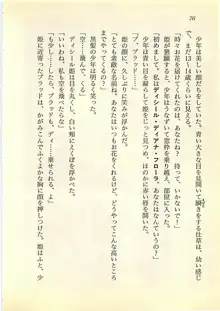 70
少年は、美しい顔だちをしていた。青い大きな目を見開いて瞬きをする仕草は、幼い感じ
だ。まだ13~14歳くらいに見える。
「時々お花を届けてくれたのは、あなたなのね？」
「待って、いかないで！」
少年は、するりと身軽に窓枠を乗り越え、部屋に入ってきた。
「初めまして。私はディシール・ディアナ・フローラ。あなたはなんていうの？」
少年は青い目を輝かせて姫を見つめ、ほのかに赤い唇を開いた。
「ブ、ブラッド……」
姫の顔に、久しぶりに笑みが浮かんだ。
「とても素敵な名前ね。あなたはいつもお花をくれるけれど、どうやってこんな高いところ
までやってくるの？」
黒髪の少年は明るく笑った。
「空、飛んでくる」
「まあ！　私も空を飛べたらな」
ディシール姫は、白い頬にえくぼを浮かべた。
「ブラッドも、ディ……乗せられる、よ」
姫に近寄ったブラッドは、かがみこんでふくよかな胸に顔を押しつけた。姫はふと、少